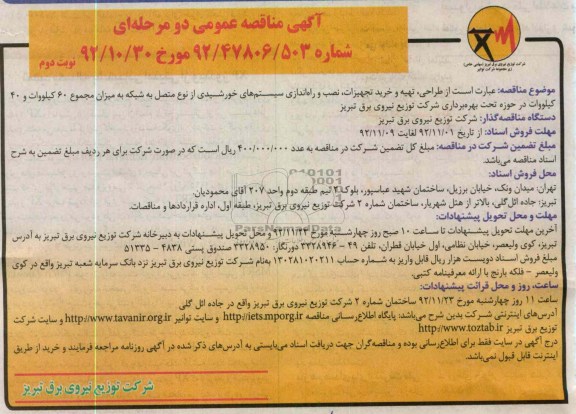 آگهی مناقصه عمومی دو مرحله‌ای
شماره ۹۲/۴۷۸۰۶/۵۰۳ مورخ ۹۲/۱۰/۳۰
نوبت دوم
شرکت توزیع نیروی برق تبریز (سهامی خاص)
موضوع مناقصه: عبارت است از طراحی، تهیه و خرید تجهیزات، نصب و راه‌اندازی سیستم‌های خورشیدی از نوع متصل به شبکه به میزان مجموع ۶۰ کیلووات و ۴۰
کیلووات در حوزه تحت بهره‌برداری شرکت توزیع نیروی برق تبریز
دستگاه مناقصه‌گذار: شرکت توزیع نیروی برق تبریز
مهلت فروش اسناد: از تاریخ ۹۲/۱۱/۰۱ لغایت ۹۲/۱۱/۰۹
مبلغ تضمین شرکت در مناقصه: مبلغ کل تضمین شرکت در مناقصه به عدد ۴۰۰/۰۰۰/۰۰۰ ریال است که در صورت شرکت برای هر ردیف مبلغ تضمین به شرح
اسناد مناقصه می‌باشد.
محل فروش اسناد:
تهران: میدان ونک، خیابان برزیل، ساختمان شهید عباسپور، بلوک ۲ نیم طبقه دوم واحد ۲۰۷ آقای محمودیان.
تبریز: جاده ائل‌گلی، بالاتر از هتل شهریار، ساختمان شماره ۲ شرکت توزیع نیروی برق تبریز، طبقه اول، اداره قراردادها و مناقصات.
مهلت و محل تحویل پیشنهادات:
آخرین مهلت تحویل پیشنهادات تا ساعت ۱۰ صبح روز چهارشنبه مورخ ۹۲/۱۱/۲۳ و محل تحویل پیشنهادات به دبیرخانه شرکت توزیع نیروی برق تبریز به آدرس
تبریز، کوی ولیعصر، خیابان نظامی، اول خیابان قطران، تلفن ۴۹ - ۳۳۲۸۹۴۶ دورنگار: ۳۳۲۸۹۵۰ صندوق پستی ۴۸۳۸ - ۵۱۳۳۵
مبلغ فروش اسناد دویست هزار ریال قابل واریز به شماره حساب ۱۳۰۲۸۱۰۲۰۲۱۱ به‌نام شرکت توزیع نیروی برق تبریز نزد بانک سرمایه شعبه تبریز واقع در کوی
ولیعصر - فلکه بارنج با ارائه معرفینامه کتبی.
ساعت، روز و محل قرائت پیشنهادات:
ساعت ۱۱ روز چهارشنبه مورخ ۹۲/۱۱/۲۳ ساختمان شماره ۲ شرکت توزیع نیروی برق تبریز واقع در جاده ائل گلی
آدرس‌های اینترنتی شرکت بدین شرح می‌باشد: پایگاه اطلاع‌رسانی مناقصه http://iets.mporg.ir و سایت توانیر http://www.tavanir.org.ir و سایت شرکت
توزیع برق تبریز http://www.toztab.ir
درج آگهی در سایت فقط برای اطلاع‌رسانی بوده و مناقصه‌گران جهت دریافت اسناد می‌بایستی به آدرس‌های ذکر شده در آگهی روزنامه مراجعه فرمایند و خرید از طریق
اینترنت قابل قبول نمی‌باشد.
شرکت توزیع نیروی برق تبریز